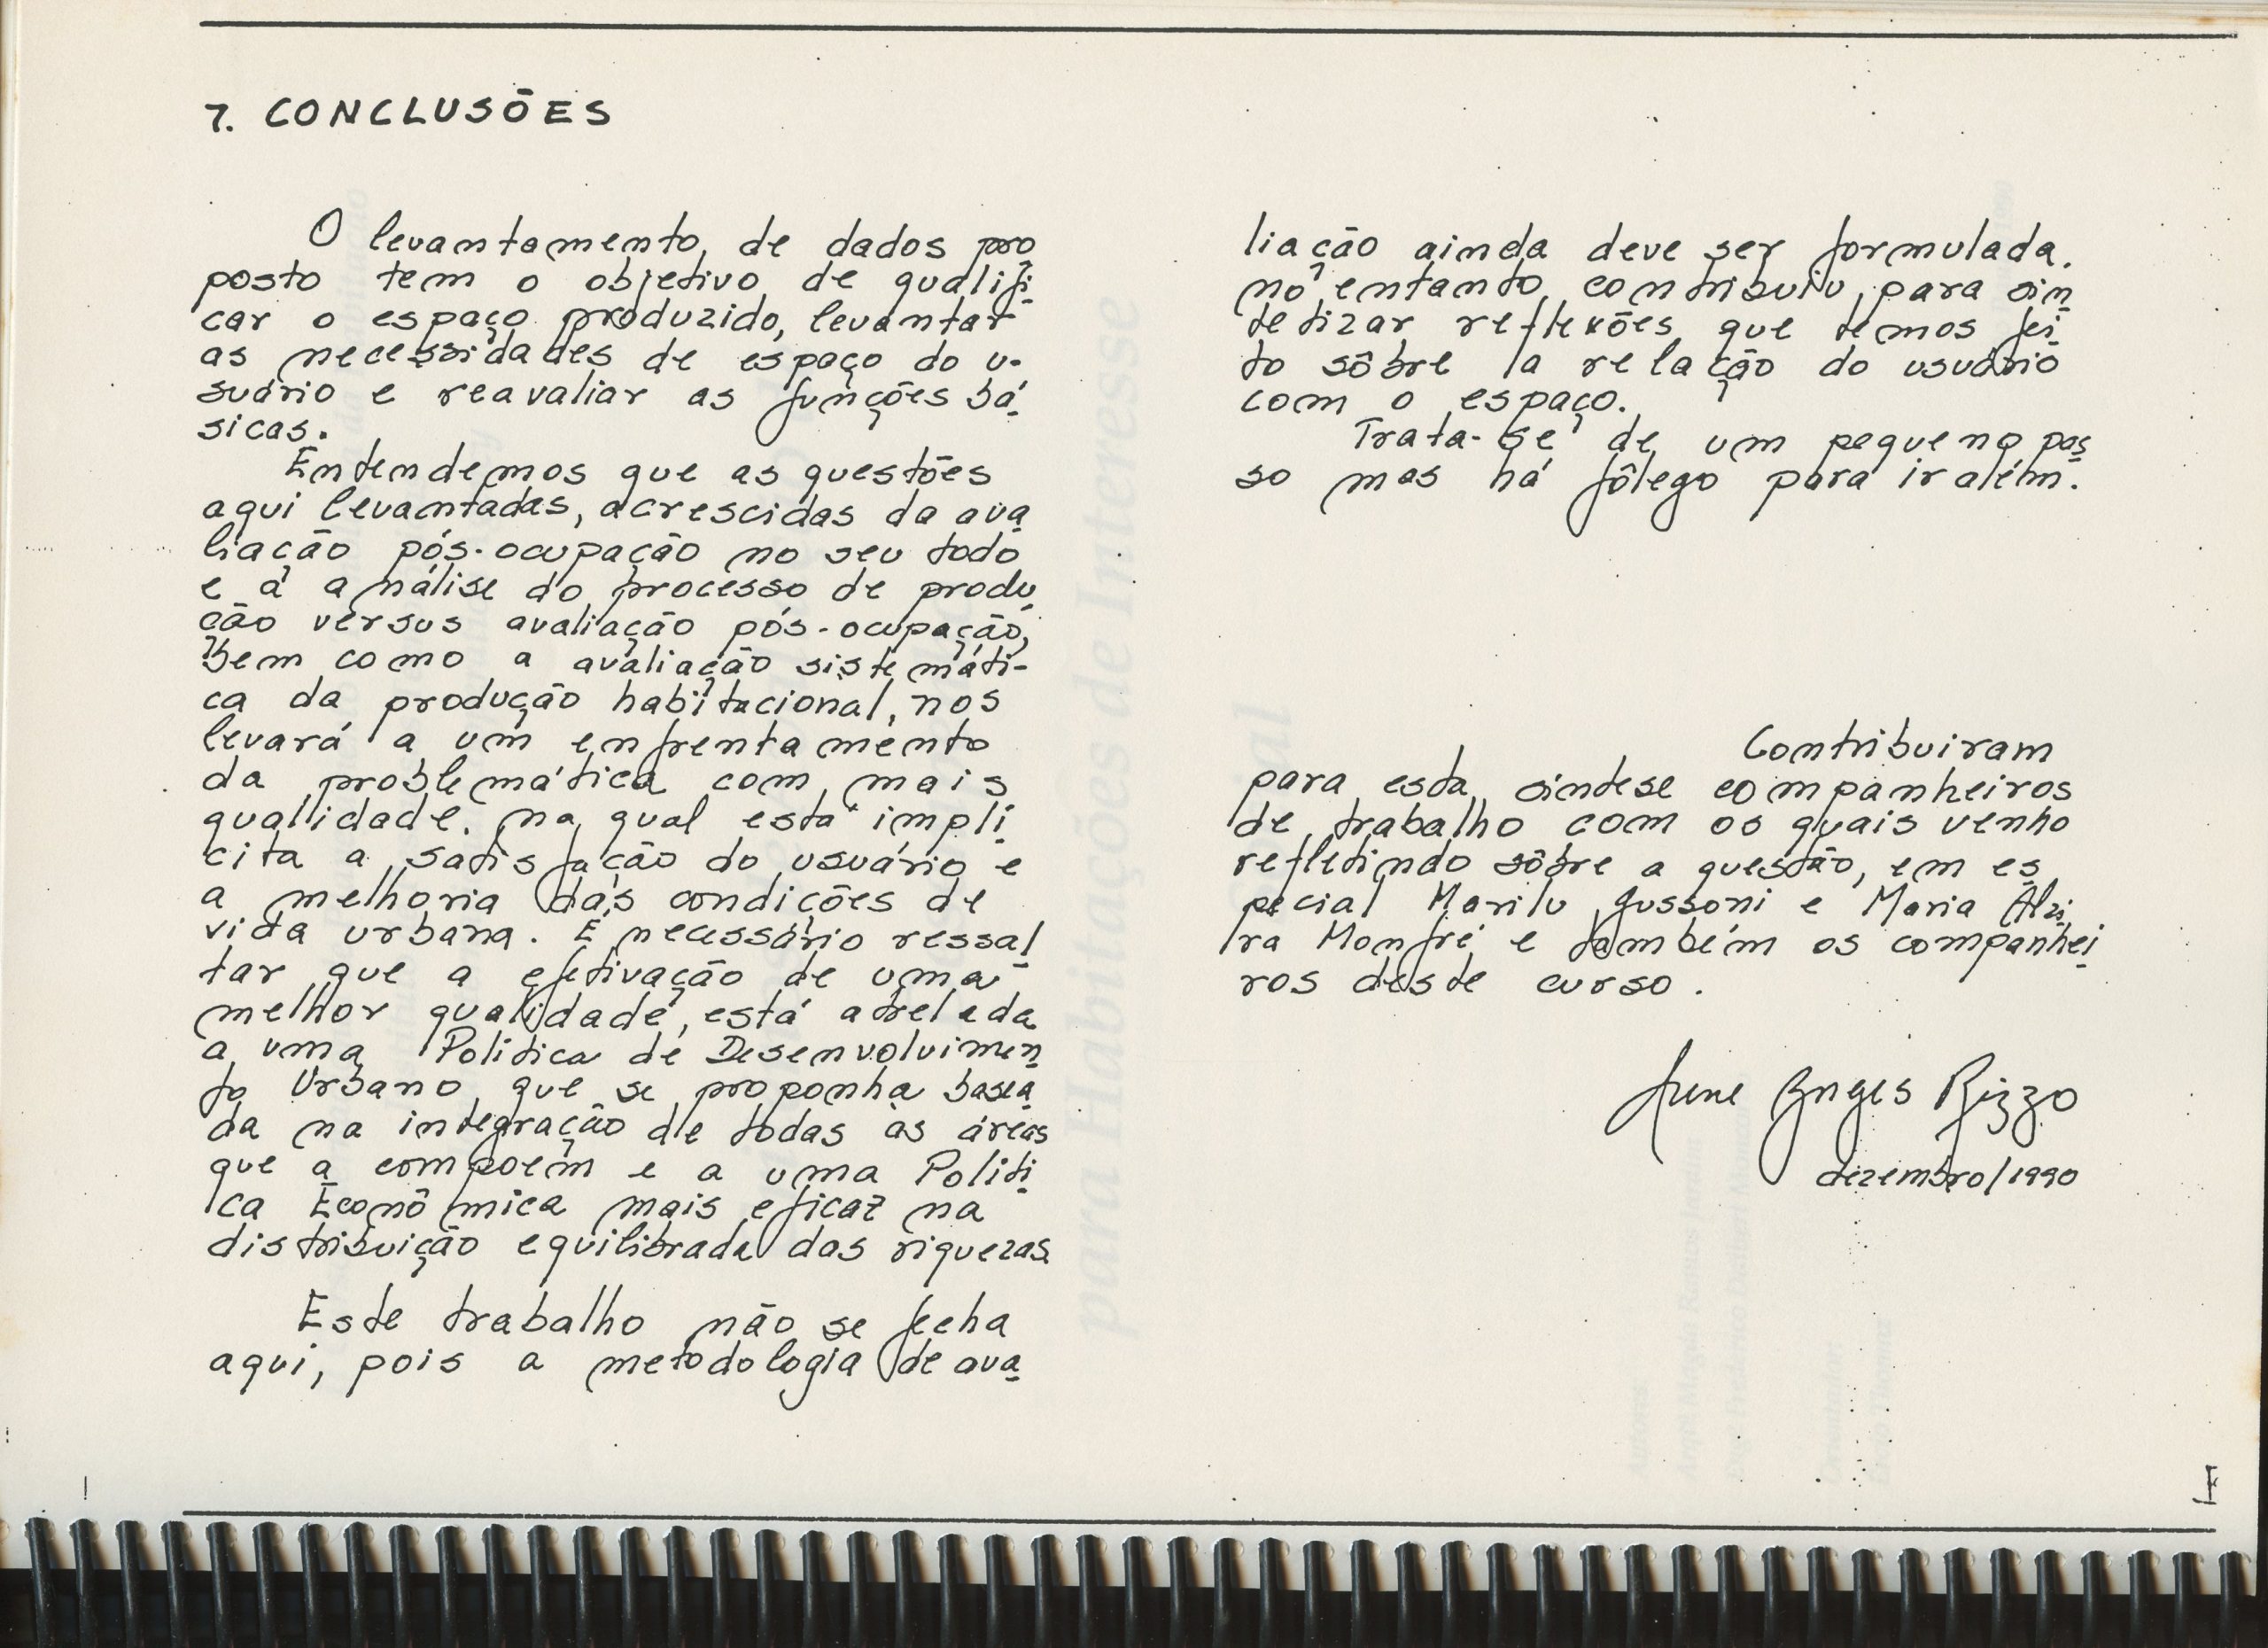 7. CONCLUSÕES
O levantamento de dados pro
posto tem o objetivo de qualifi
car o espaço produzido, levantar
as necessidades de espaço do u-
suário e reavaliar as funções bá
sicas.
Entendemos que as questões
aqui levantadas, acrescidas da ava
liação pós-ocupação no seu todo
e a análise do processo de produ
ção versus avaliação pós-ocupação,
bem como a avaliação sistemáti-
ca da produção habitacional, nos
levará a um enfrentamento
da problemática com mais
qualidade, na qual está implí
cita a satisfação do usuário e
a melhoria das condições de
vida urbana. É necessário ressal
tar que a efetivação de uma
melhor qualidade, está atrelada
a uma Política de Desenvolvimen
to Urbano que se proponha basea
da na integração de todas as áreas
que a compoem e a uma Políti
ca Econômica mais eficaz na
distribuição equilibrada das riquezas
Este trabalho não se fecha
aqui, pois a metodologia de ava
liação ainda deve ser formulada.
no entanto contribuiu para sin
tetizar reflexões que temos fei
to sôbre a relação do usuário
com o espaço.
Trata-se de um pequeno pas
so mas há fôlego para ir além.
Contribuiram
para esta síntese companheiros
de trabalho com os quais venho
refletindo sôbre a questão, em es
pecial Marilu Gussoni e Maria Alzi
ra Monfré e também os companhei
ros deste curso.
Rizzo
dezembro/1990
para Habitações de Interesse